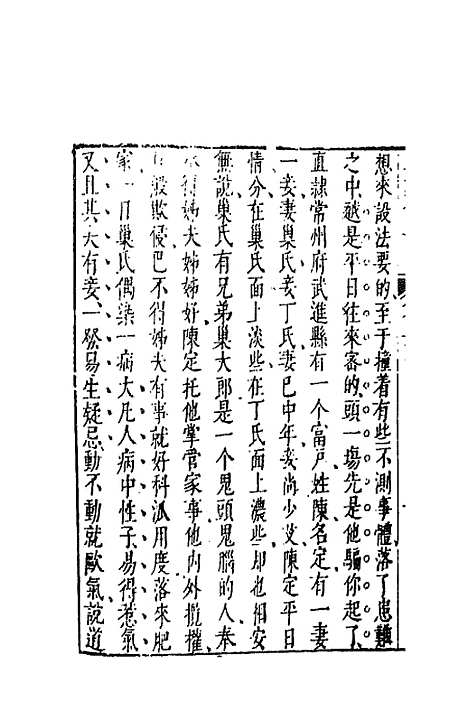 想來設法要的至于撞着有些不測事體落了患難
之中越是平日往來密的頭一場先是他騙你起了
直隷常州府武進縣有一个富戸姓陳名定有一妻
一妾妻巢氏妾丁氏妻已中年妾尚少艾陳定平日
情分在巢氏面上淡些在丁氏面上濃些却也相安
無說巢氏有兄弟巢大郎是一个鬼頭鬼腦的人奉
得姊夫姊姊好陳定托他掌管家事他内外攬權
般欺侵巴不得姊夫有事就好科派用度落來肥
家一日巢氏偶染一病大凡人病中性子易得惹氣
又且其夫有妾一發易生疑忌動不動就歐氣說道